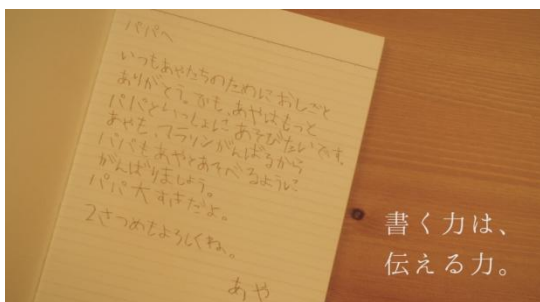 パパへ
いつもあやたちのためにおしごと
ありがとう。でも、あやはもっと
パパといっしょにあそびたいです。
あやも、フラリンがんばるから
パパもあやとあそべるように
がんばりましょう。
パパ大すきだよ。
2さつめもよろしくね。
あや
書く力は、
伝える力。